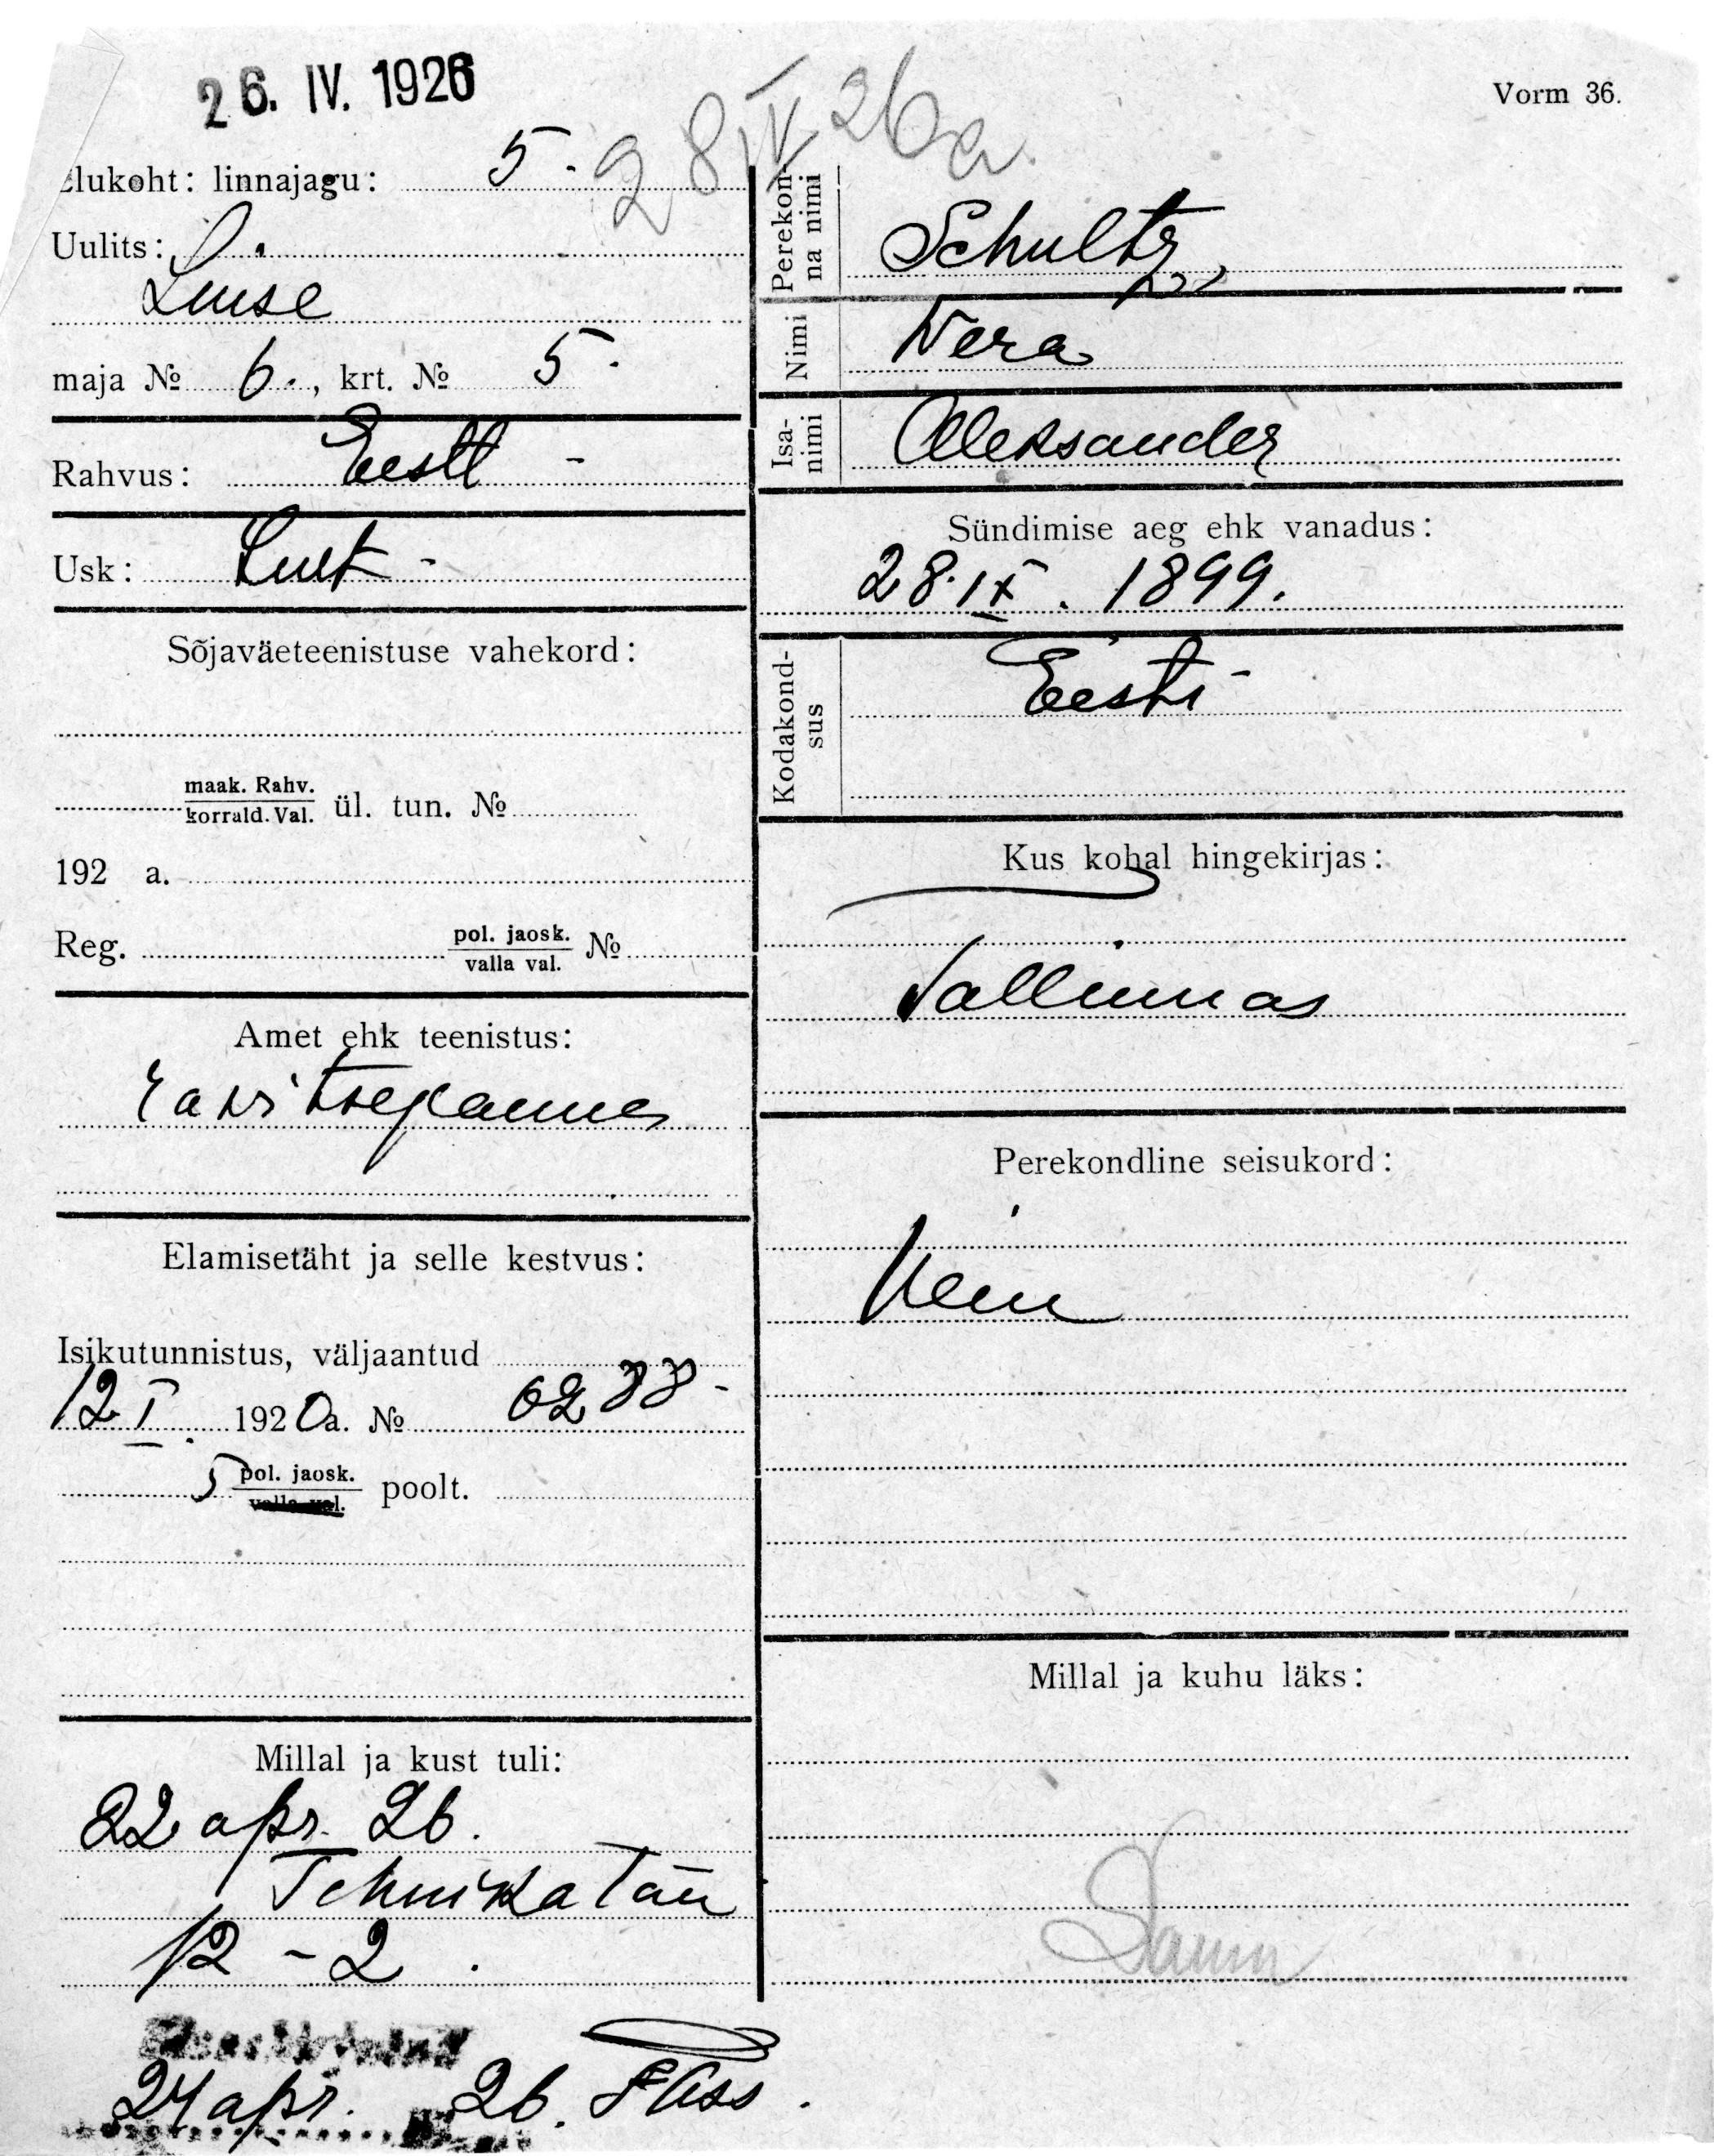 26. IV. 1926
28 IV 26 a.
Vorm 36.
Elukoht: linnajagu: 5.
Uulits:
Luise
maja № 6., krt. № 5.
Rahvus: Eesti -
Usk: Lut -
Sõjaväeteenistuse vahekord:
maak. Rahv.
korrald. Val. ül. tun. №
192 a.
Reg. pol. jaosk.
valla val. №
Amet ehk teenistus:
Elamisetäht ja selle kestvus:
Isikutunnistus, väljaantud
12 I 1920 a. № 6288 -
5 pol. jaosk.
valla val. poolt.
Millal ja kust tuli:
22 apr. 26.
Tehnika tän
12 - 2.
24 apr. 26.
Perekon-
na nimi Schultz
Nimi Wera
Isa-
nimi Aleksander
Sündimise aeg ehk vanadus:
28. IX. 1899.
Kodakond-
sus Eesti -
Kus kohal hingekirjas:
Tallinnas
Perekondline seisukord:
Millal ja kuhu läks: